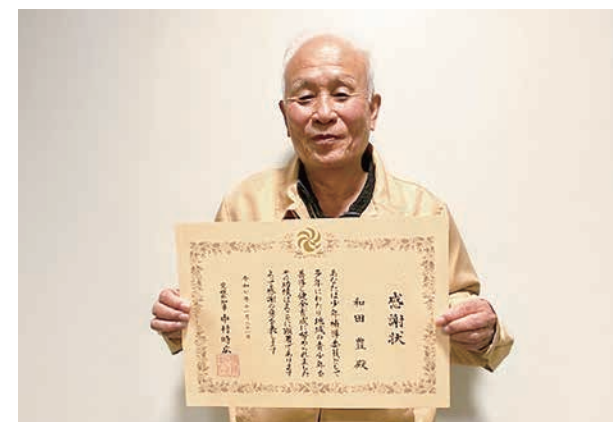 感謝状
和田 豊 殿
あなたは少年補導委員として
多年にわたり地域の青少年の
善導と健全育成に努められました
その功績はまことに顕著であります
よって感謝の意を表します
愛媛県知事 中村時広